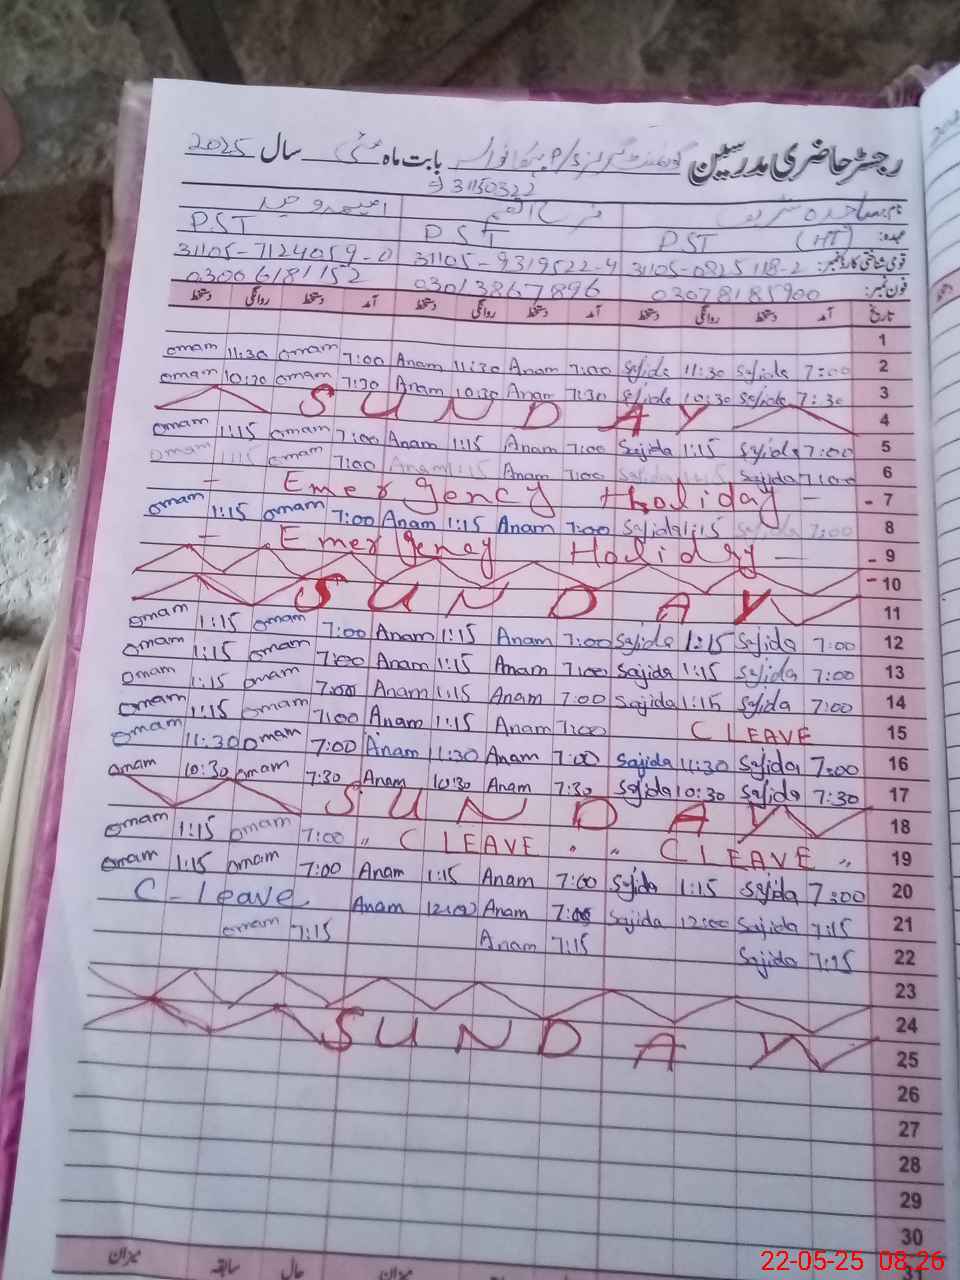 رجسٹر حاضری مدرسین گورنمنٹ گرلز P/S بابت ماہ مئی سال 2025
31150322
نام: ساجدہ شریف
عہدہ: PST (HT) PST PST
قومی شناختی کارڈ نمبر: 31105-0825118-2 31105-9319522-4 31105-7124059-0
فون نمبر: 03078185900 03013867896 03006181152
تاریخ آمد دستخط روانگی دستخط آمد دستخط روانگی دستخط آمد دستخط روانگی دستخط
1
omam 11:30 omam 7:00 Anam 11:30 Anam 7:00 Sajida 11:30 Sajida 7:00 2
omam 10:30 omam 7:30 Anam 10:30 Anam 7:30 Sajida 10:30 Sajida 7:30 3
SUNDAY 4
omam 1:15 omam 7:00 Anam 1:15 Anam 7:00 Sajida 1:15 Sajida 7:00 5
omam 1:15 omam 7:00 Anam 1:15 Anam 7:00 Sajida 1:15 Sajida 7:00 6
- Emergency Holiday - - 7
omam 1:15 omam 7:00 Anam 1:15 Anam 7:00 Sajida 1:15 Sajida 7:00 8
- Emergency Holiday - - 9
- 10
SUNDAY 11
omam 1:15 omam 7:00 Anam 1:15 Anam 7:00 Sajida 1:15 Sajida 7:00 12
omam 1:15 omam 7:00 Anam 1:15 Anam 7:00 Sajida 1:15 Sajida 7:00 13
omam 1:15 omam 7:00 Anam 1:15 Anam 7:00 Sajida 1:15 Sajida 7:00 14
omam 1:15 omam 7:00 Anam 1:15 Anam 7:00 C LEAVE 15
omam 11:30 omam 7:00 Anam 11:30 Anam 7:00 Sajida 11:30 Sajida 7:00 16
omam 10:30 omam 7:30 Anam 10:30 Anam 7:30 Sajida 10:30 Sajida 7:30 17
SUNDAY 18
omam 1:15 omam 7:00 " C LEAVE " " C LEAVE " 19
omam 1:15 omam 7:00 Anam 1:15 Anam 7:00 Sajida 1:15 Sajida 7:00 20
C - Leave Anam 12:00 Anam 7:00 Sajida 12:00 Sajida 7:15 21
omam 7:15 Anam 7:15 Sajida 7:15 22
23
24
SUNDAY 25
26
27
28
29
30
میزان سابقہ حال میزان
22-05-25 08:26